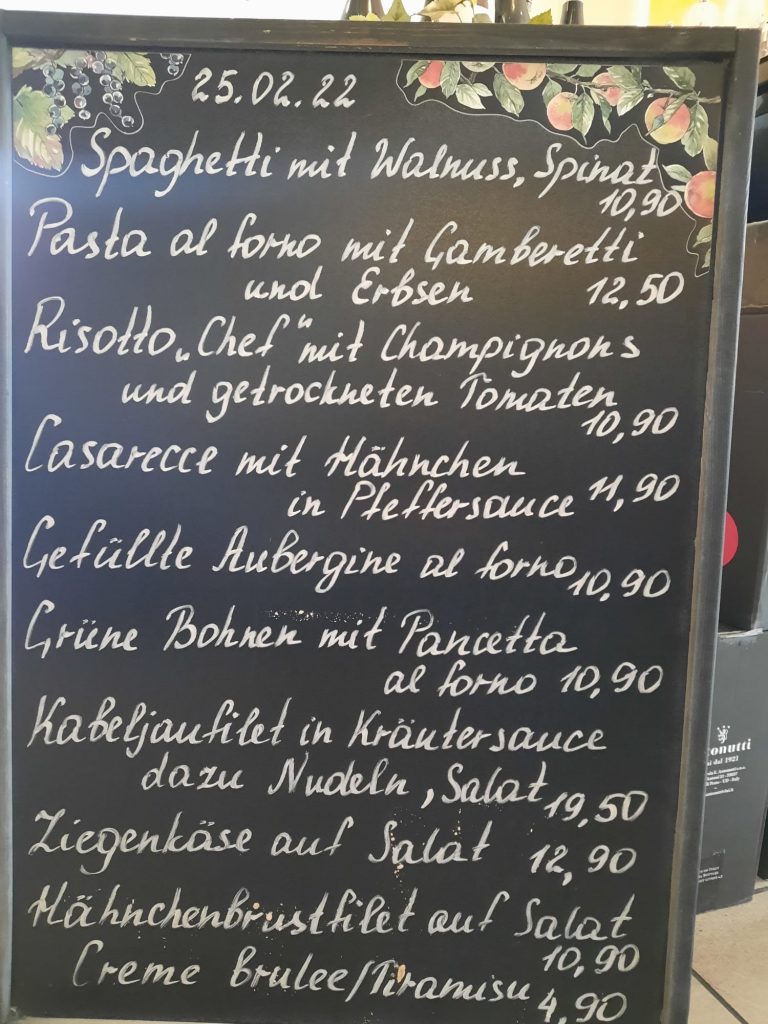 25.02.22
Spaghetti mit Walnuss, Spinat
10,90
Pasta al forno mit Gamberetti
und Erbsen 12,50
Risotto „Chef“ mit Champignons
und getrockneten Tomaten
10,90
Casarecce mit Hähnchen
in Pfeffersauce 11,90
Gefüllte Aubergine al forno 10,90
Grüne Bohnen mit Pancetta
al forno 10,90
Kabeljaufilet in Kräutersauce
dazu Nudeln, Salat 19,50
Ziegenkäse auf Salat 12,90
Hähnchenbrustfilet auf Salat
10,90
Creme brulee/Tiramisu 4,90
onutti
dal 1921